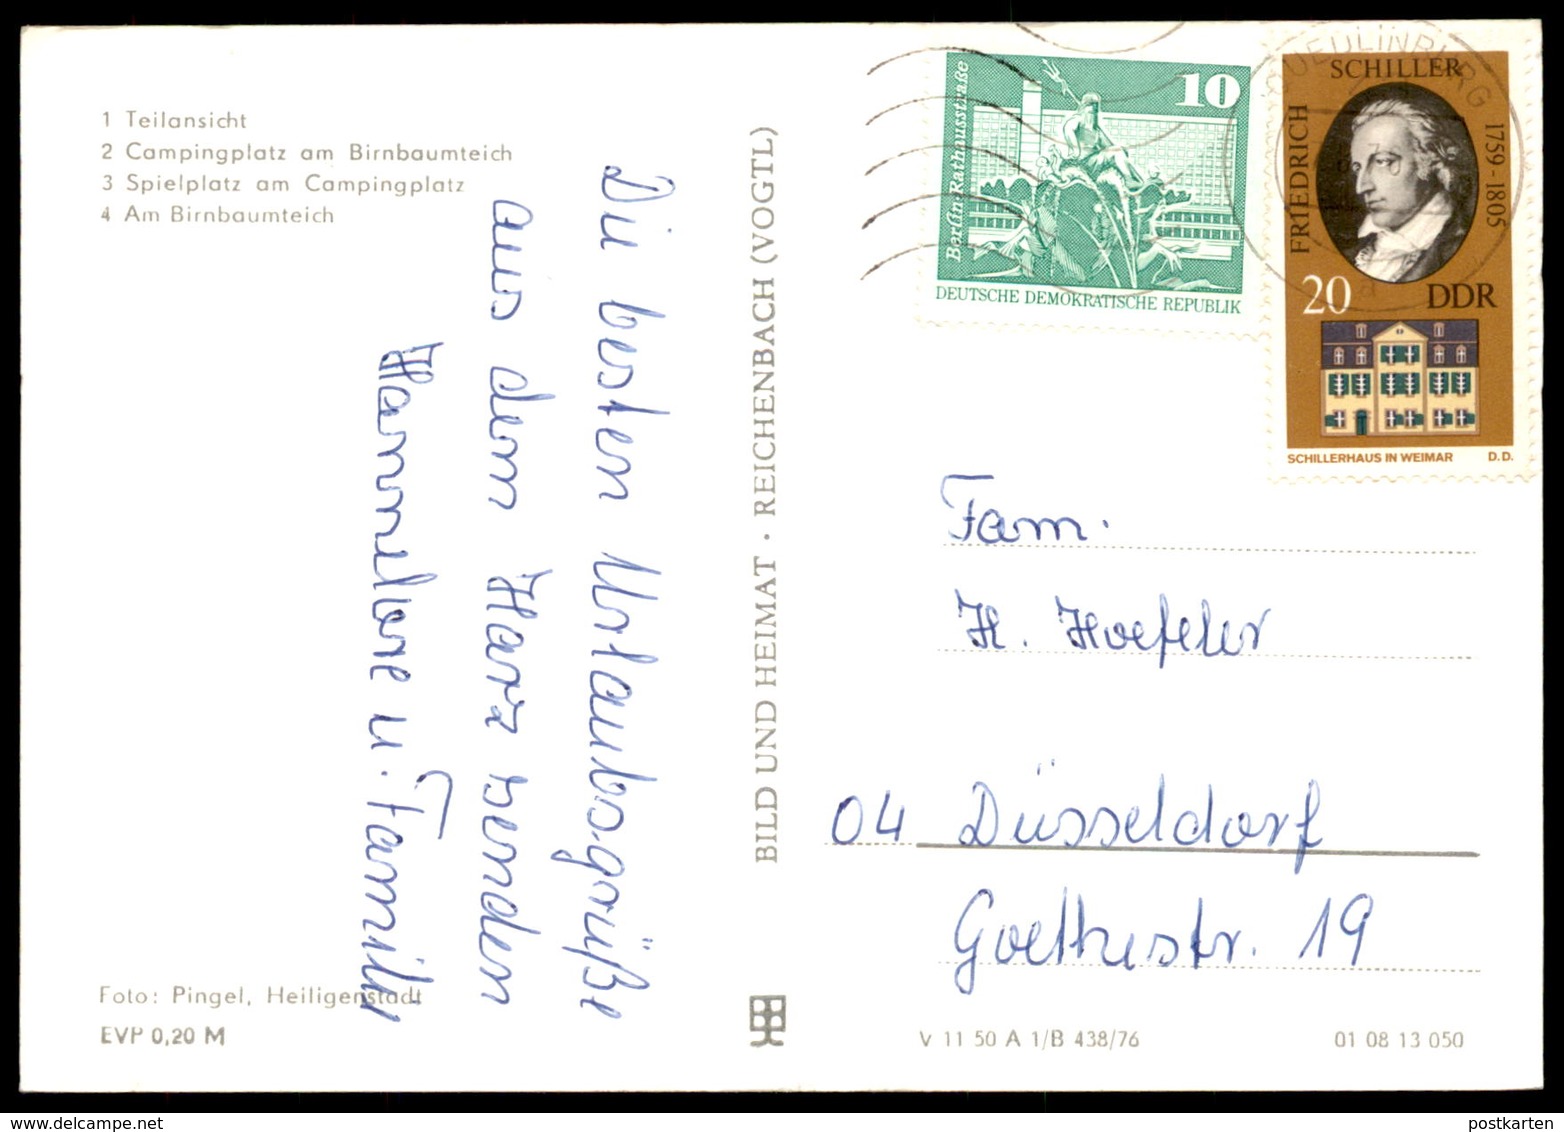 1 Teilansicht
2 Campingplatz am Birnbaumteich
3 Spielplatz am Campingplatz
4 Am Birnbaumteich
Die besten Urlaubsgrüße
aus dem Harz senden
Hannelore u. Familie
Foto: Pingel, Heiligenstadt
EVP 0,20 M
BILD UND HEIMAT · REICHENBACH (VOGTL)
Berlin-Rathausstraße
10
DEUTSCHE DEMOKRATISCHE REPUBLIK
QUEDLINBURG
FRIEDRICH
SCHILLER
1759-1805
20
DDR
SCHILLERHAUS IN WEIMAR
D.D.
Fam.
H. Hoefeler
04 Düsseldorf
Goethestr. 19
V 11 50 A 1/B 438/76
01 08 13 050
postkarten